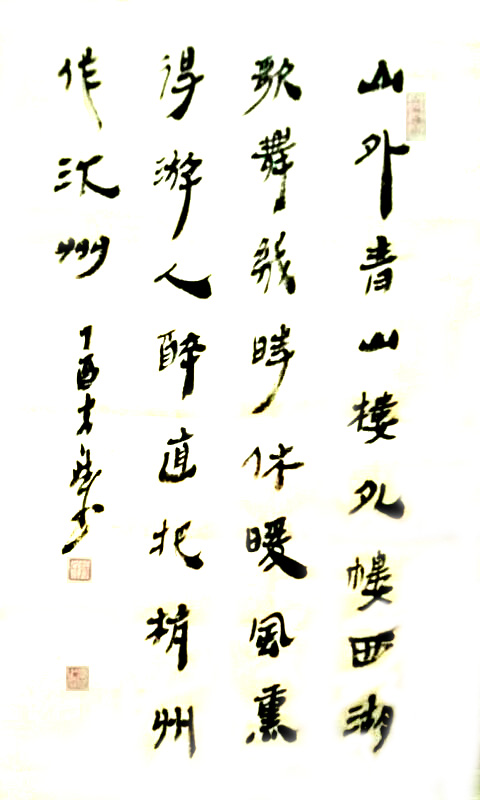 山外青山樓外樓西湖
歌舞幾時休暖風熏
得游人醉直把杭州
作汴州 丁酉